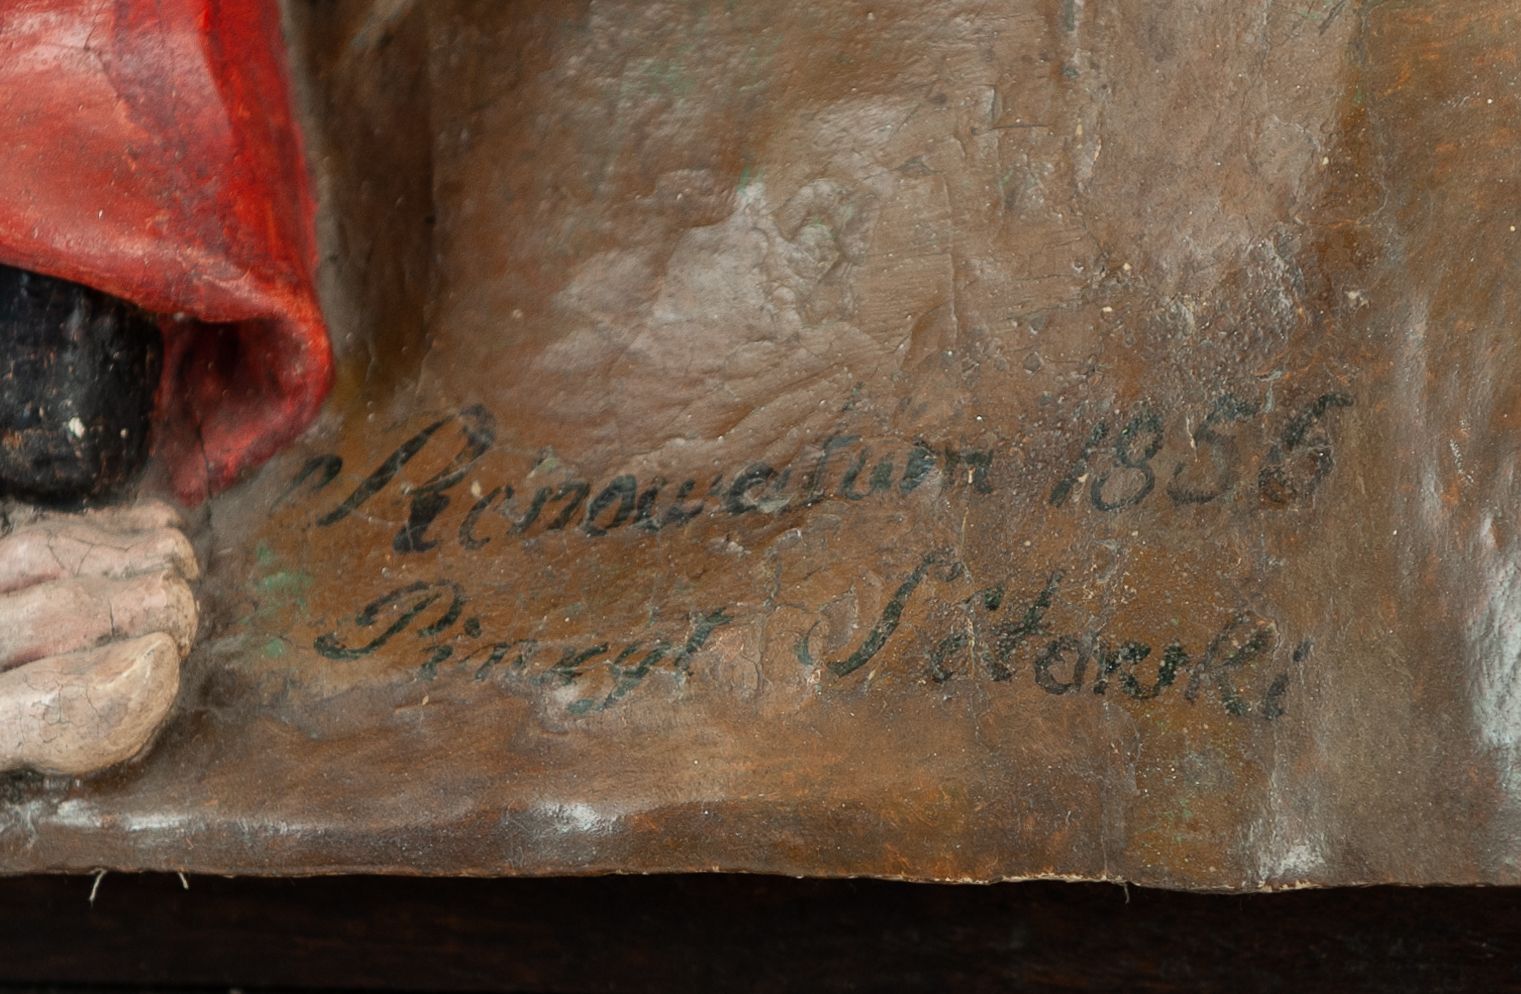 Renowatum 1856
Pinxyt Sctowski